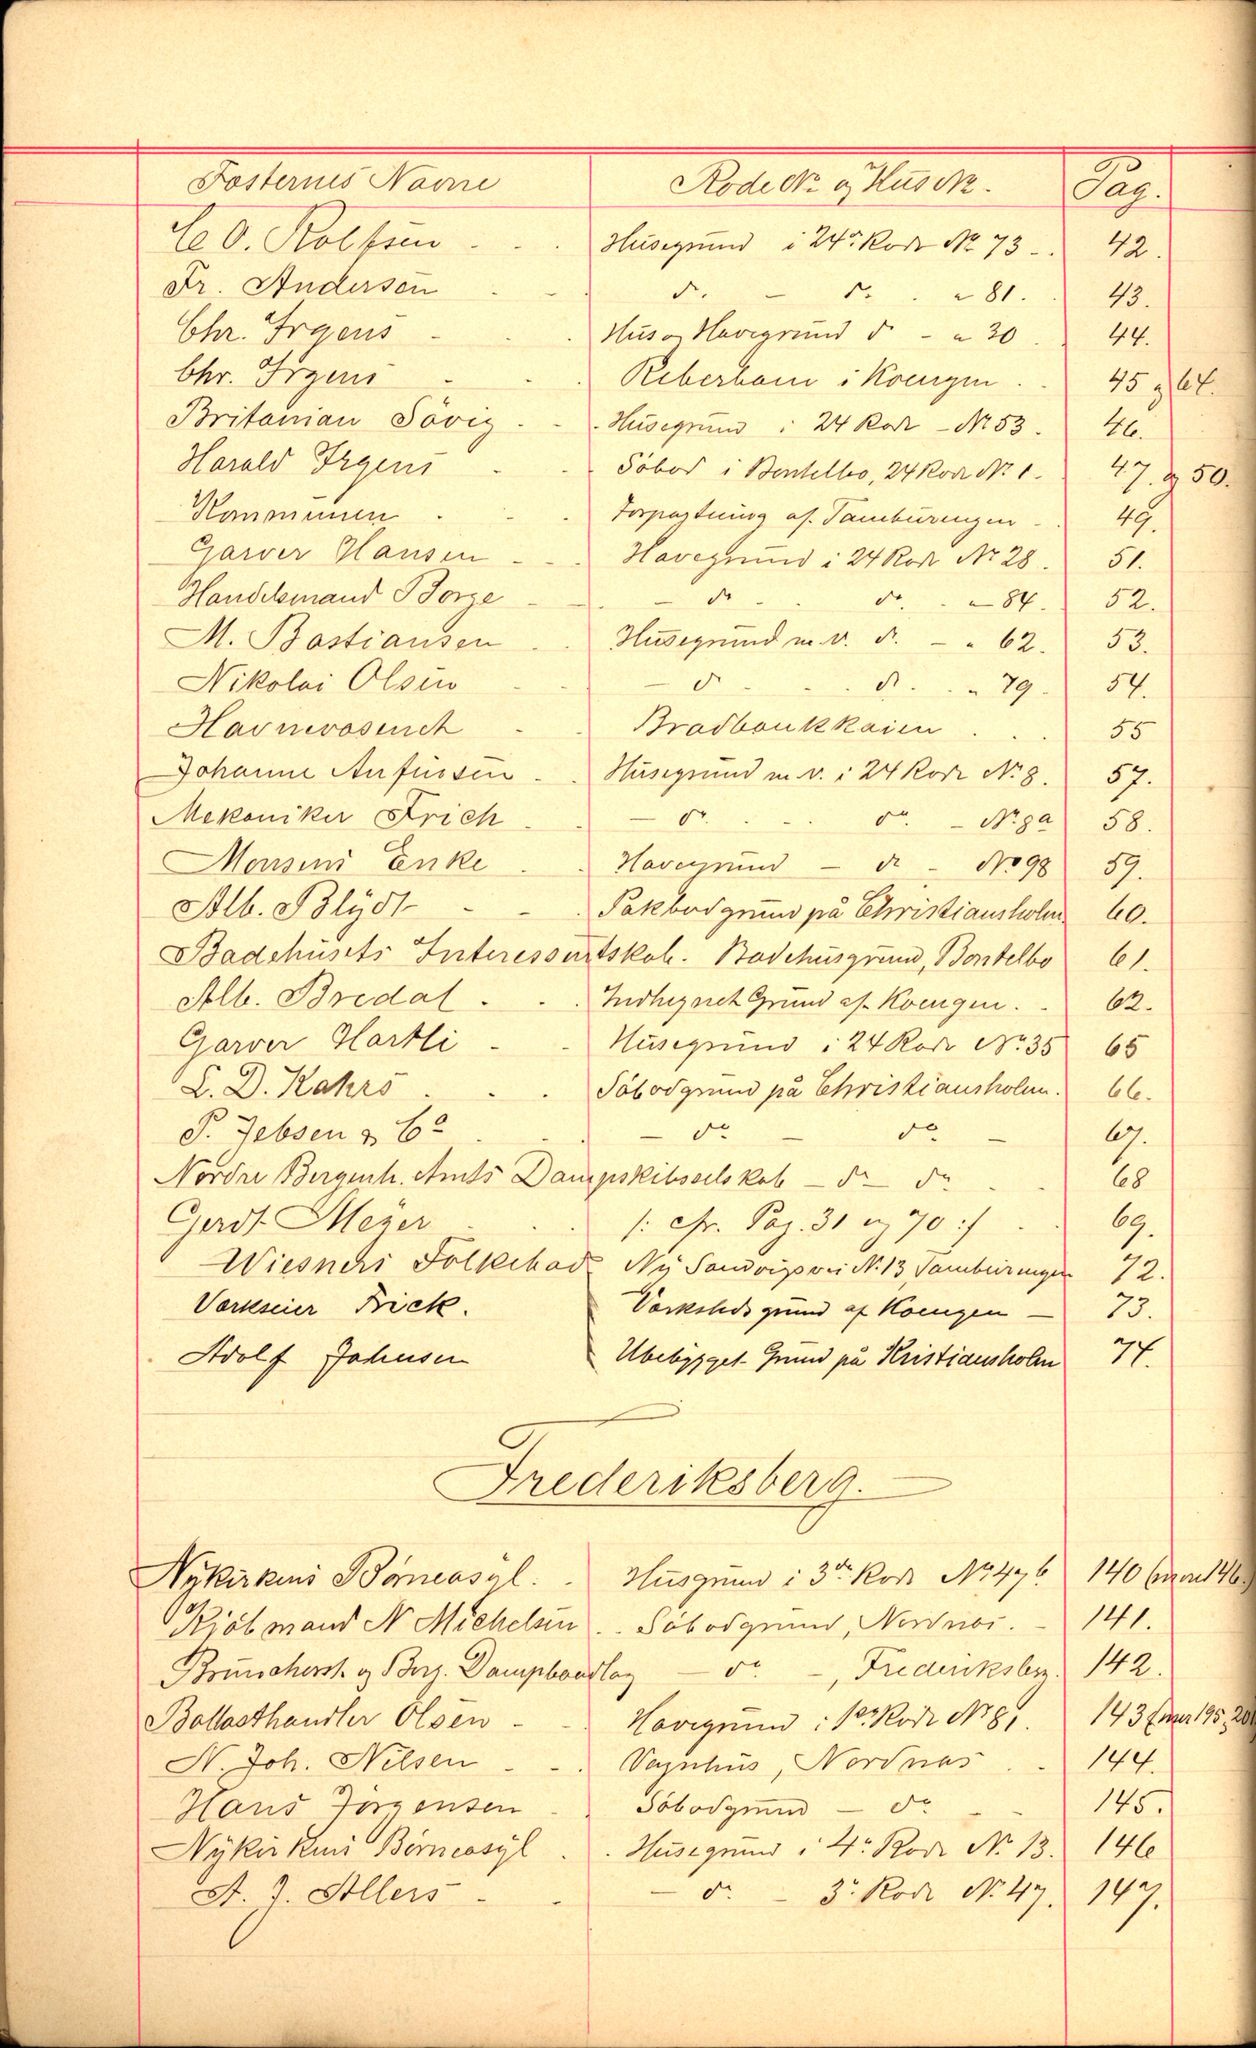 Festernes Navne Rode No og Hus No. Pag.
C. O. Rolfsen Husegrund i 24de Rode No 73 42.
Fr. Andersen do. - do. " 81. 43.
Chr. Irgens Hus og Havegrund do - " 30 44.
Chr. Irgens Reberbane i Koengen 45 og 64.
Britanian Sövig Husegrund i 24 Rode - No 53. 46.
Harald Irgens Söbod i Bontelbo, 24 Rode No 1. 47. og 50.
Kommunen Forpagtning af Tamburengen 49.
Garver Hansen Havegrund i 24 Rode No 28. 51.
Handelsmand Borge - do - do. - 84. 52.
M. Bastiansen Husegrund m. v. do. - " 62. 53.
Nikolai Olsen - do - do. " 79. 54.
Havnevæsenet Bradbænkkaien 55
Johanne Anfinsen Husegrund m. v. i 24 Rode No 8. 57.
Mekaniker Frich - do. do. - No. 8a 58.
Monsens Enke Havegrund - do - No 98 59.
Alb. Blydt Pakbodgrund på Christiansholm 60.
Badehusets Interessentskab. Badehusgrund, Bontelbo 61.
Alb. Bredal Indhegnet Grund af Koengen. 62.
Garver Hartli Husegrund i 24 Rode No. 35 65
L. D. Kahrs Söbodgrund på Christiansholm. 66.
P. Jebsen & Co - do - do - 67.
Nordre Bergenh. Amts Dampskibsselskab - do - do 68
Gerdt Meyer /: cfr. Pag. 31 og 70 :/ 69.
Wiesners Folkebad Ny Sandvigsvei No. 13, Tamburengen 72.
Værkseier Frick. Værkstedsgrund af Koengen - 73.
Adolf Johnsen Ubebygget Grund på Kristiansholm 74.
Frederiksberg.
Nykirkens Börneasyl. Husgrund i 3die Rode No 47b. 140 146.)
Kjöbmand N Michelsen Söbodgrund, Nordnæs. 141.
Brunchorst og Berg. Dampbaadlag - do. -, Frederiksberg. 142.
Ballasthandler Olsen Havegrund i Rode No 81. 143 195, 201
N. Joh. Nilsen Vognhus, Nordnæs 144.
Hans Jörgensen Söbodgrund - do - 145.
Nykirkens Börneasyl Husegrund i 4de Rode No 13. 146
A. J. Allers - do. - 3de Rode No. 47. 147.